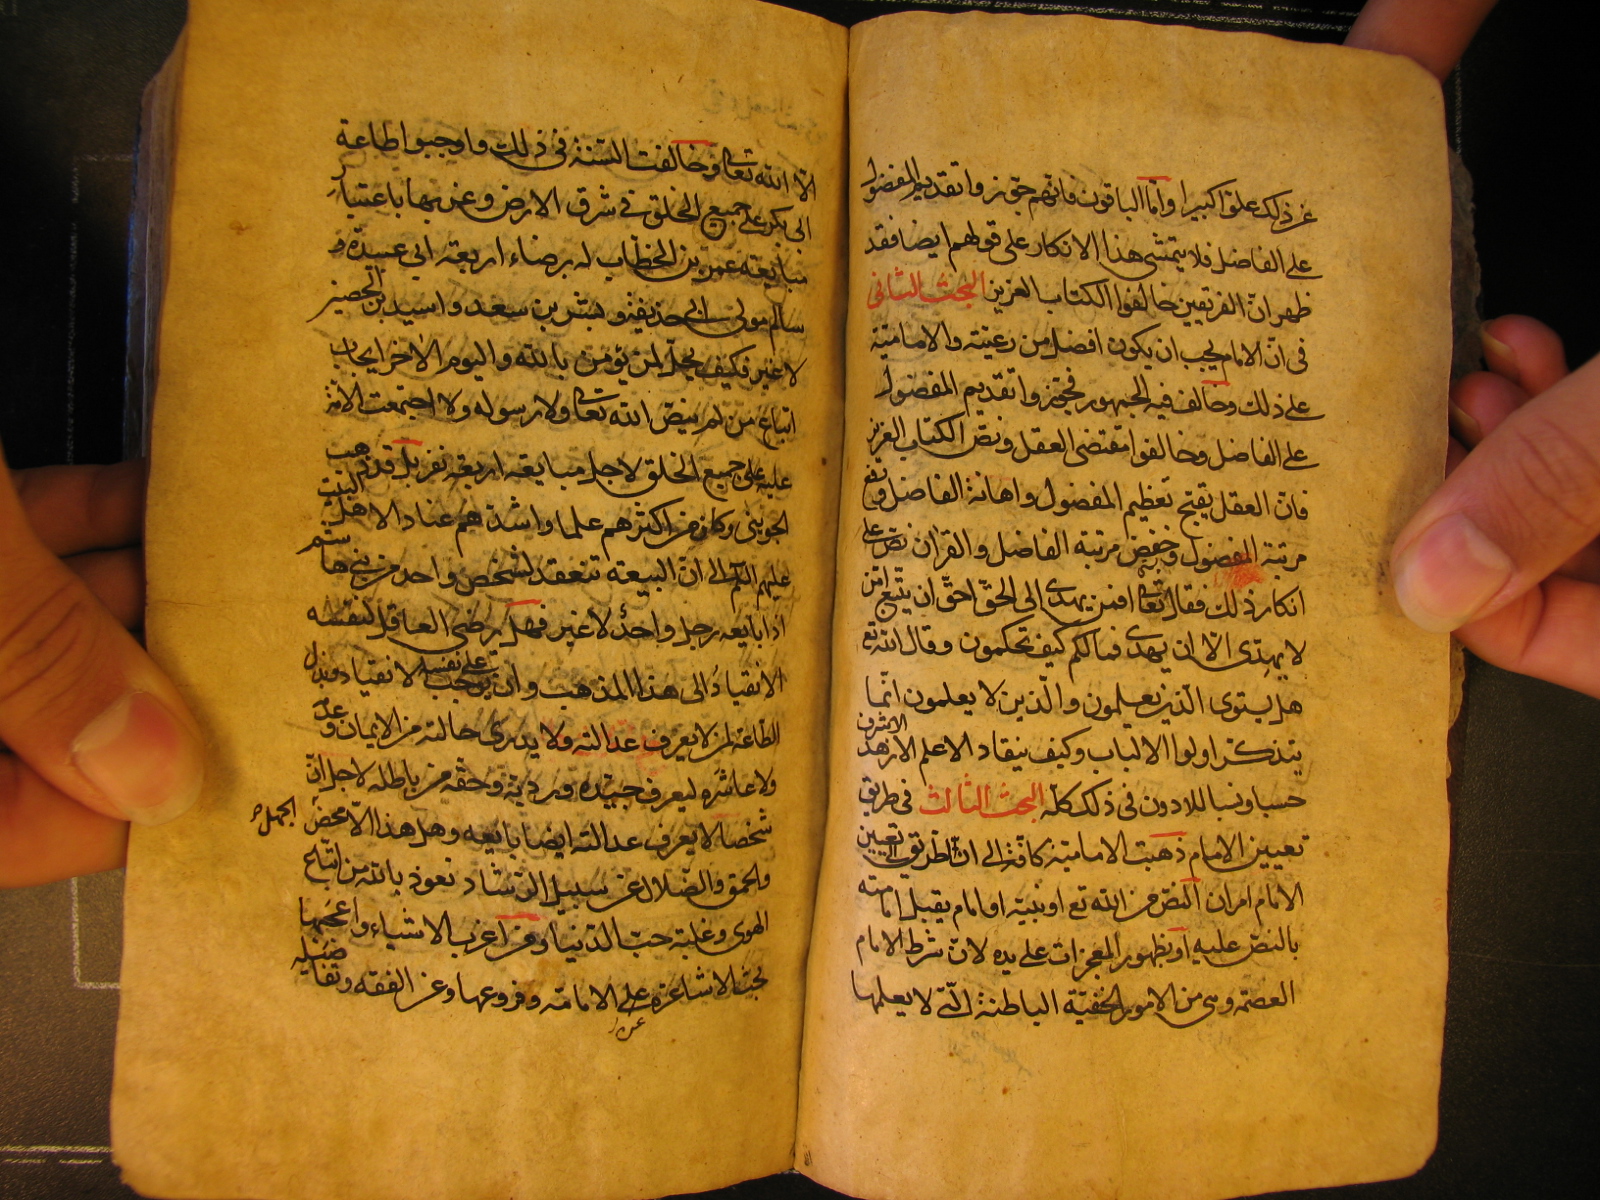 عن ذلك علوّا كبيرا وامّا الباقون فانهم جوزوا تقديم المفضول
على الفاضل فلا يتمشى هذا الانكار على قولهم ايضا فقد
ظهر انّ الفريقين خالفوا الكتاب العزيز البحث الثانى
فى انّ الامام يجب ان يكون افضل من رعيته والامامية
على ذلك وخالف فيه الجمهور فجوزوا تقديم المفضول
على الفاضل وخالفوا مقتضى العقل ونصّ الكتاب العزيز
فانّ العقل يقبح تعظيم المفضول واهانة الفاضل ورفع
مرتبة المفضول وخفض مرتبة الفاضل والقران نصّ على
انكار ذلك فقال تعالى افمن يهدى الى الحقّ احقّ ان يتّبع امّن
لا يهدّى الّا ان يهدى فما لكم كيف تحكمون وقال الله تع
هل يستوى الّذين يعلمون والّذين لا يعلمون انّما
يتذكّر اولوا الالباب وكيف ينقاد الاعلم الازهد الاشرف
حسبا ونسبا للادون فى ذلك كلّه البحث الثالث فى طريق
تعيين الامام ذهبت الامامية كافّة الى انّ الطريق الى تعيين
الامام امران النصّ من الله تع او نبيّه او امام يقبل امامته
بالنصّ عليه او ظهور المعجزات على يده لانّ شرط الامام
العصمة وهى من الامور الخفيّة الباطنة الّتى لا يعلمها
الّا الله تعالى وخالفت السّنة فى ذلك واوجبوا اطاعة
ابى بكر على جميع الخلق فى شرق الارض وغربها باعتبار
مبايعة عمر بن الخطّاب له برضاء اربعة ابى عبيدة و
سالم مولى ابى حذيفة وبشر بن سعد واسيد بن الحضير
لا غير فكيف يحلّ لمن يؤمن بالله واليوم الآخر ايجاب
اتباع من لم ينصّ الله تعالى ولا رسوله ولا اجتمعت الامّة
عليه على جميع الخلق لاجل مبايعة اربعة نفر بل قد ذهب
الجوينى وكان من اكثرهم علما واشدّهم عنادا لاهل البيت
عليهم السّلام الى انّ البيعة تنعقد لشخص واحد من بنى هاشم
اذا بايعه رجل واحد لا غير فهل يرضى العاقل لنفسه
الانقياد الى هذا المذهب وان يوجب على نفسه الانقياد وبذل
الطّاعة لمن لا يعرف عدالته ولا يدرى حاله من الايمان وعدمه
ولا عاشره ليعرف جيّده ورديّه وحقّه من باطله لاجل انّ
شخصا لا يعرف عدالته ايضا بايعه وهل هذا الّا محض الجهل
والحمق والضّلال عن سبيل الرّشاد نعوذ بالله من اتّباع
الهوى وغلبة حبّ الدّنيا ومن اغرب الاشياء واعجبها
بحث الاشاعرة على الامامة وفروعها وعن الفقه وتفاصيله